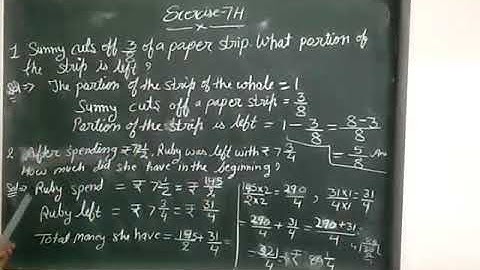 Exercise-7H
1 Sunny cuts off 3/8 of a paper strip. What portion of
the strip is left?
Sol ⇒ The portion of the strip of the whole = 1
Sunny cuts off a paper strip = 3/8
Portion of the strip is left = 1 - 3/8 = 8-3/8
= 5/8 Ans
2. After spending ₹72 1/2, Ruby was left with ₹7 3/4
How much did she have in the beginning?
Sol ⇒ Ruby spend = ₹72 1/2 = ₹ 145/2
Ruby left = ₹ 7 3/4 = ₹ 31/4
Total money she have = 145/2 + 31/4 =
145×2/2×2 = 290/4 ; 31×1/4×1 = 31/4
= 290/4 + 31/4 = 290+31/4
= 321/4 = ₹ 80 1/4